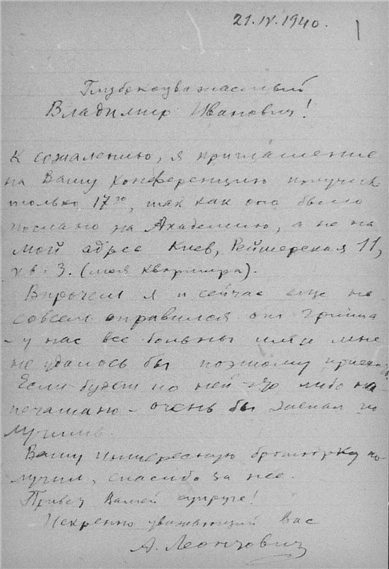 21.IV.1940.
Глубокоуважаемый
Владимир Иванович!
К сожалению, я приглашение
на Вашу конференцию получил
только 17го, так как оно было
послано на Академию, а не на
мой адрес Киев, Рейтерская 11,
кв. 3. (моя квартира).
Впрочем я и сейчас еще не
совсем оправился от гриппа
– у нас все больны им и мне
не удалось бы поэтому приехать.
Если будет по ней что либо на-
печатано – очень бы желал по-
лучить.
Вашу интересную брошюрку по-
лучил, спасибо за нее.
Привет Вашей супруге!
Искренно уважающий Вас
А.